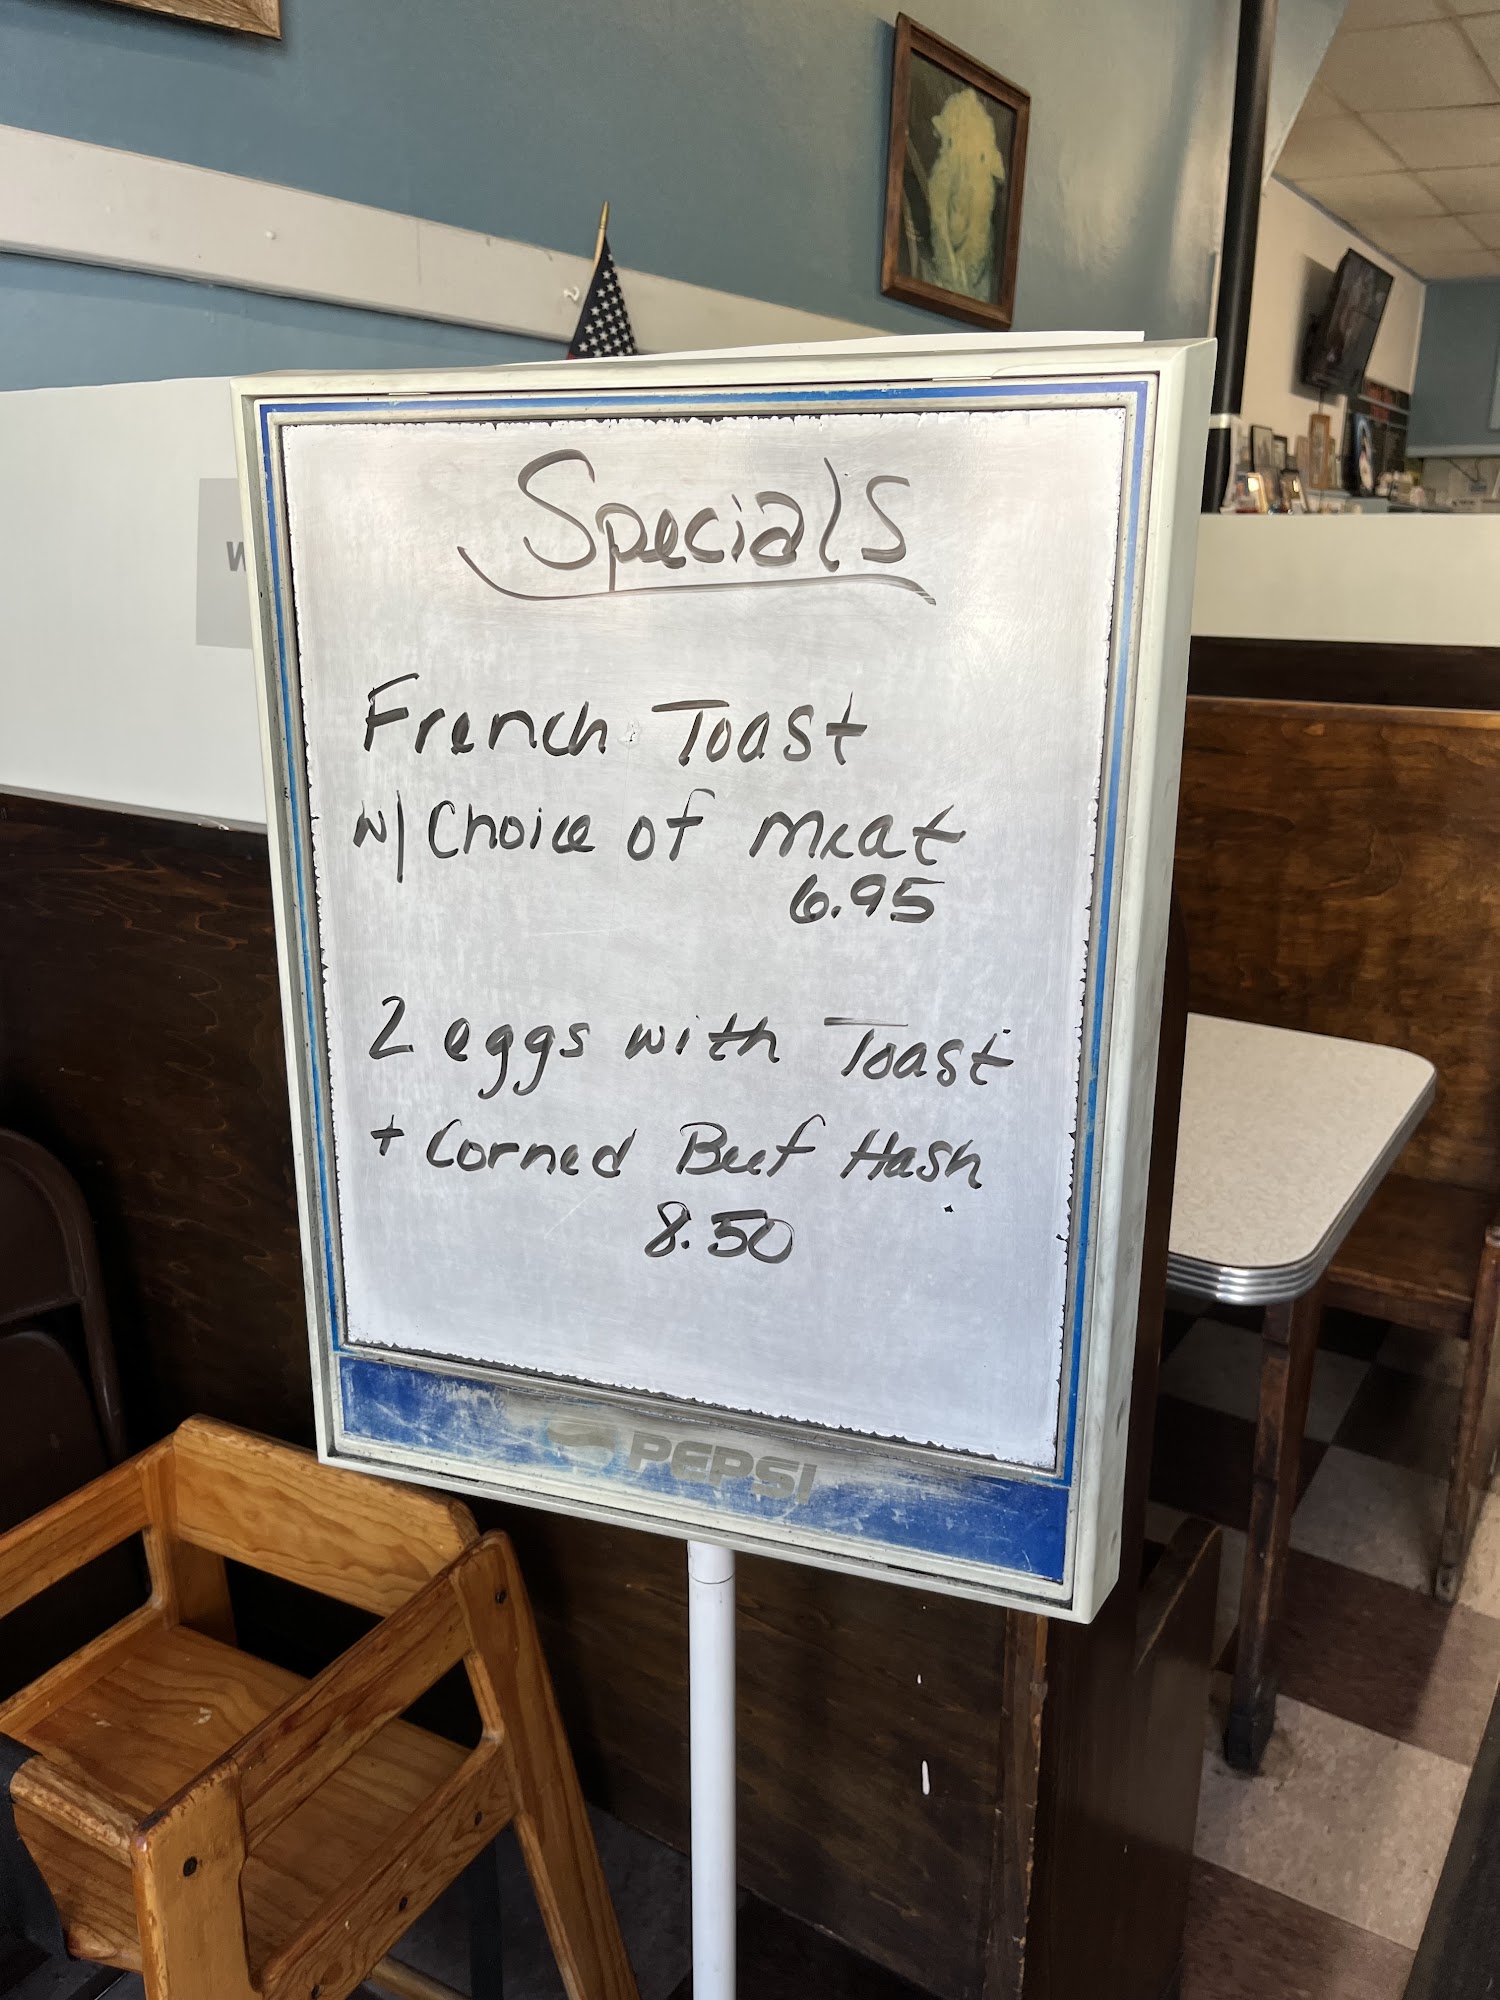 Specials
French Toast
w/ Choice of Meat
6.95
2 eggs with Toast
+ Corned Beef Hash
8.50
PEPSI
W